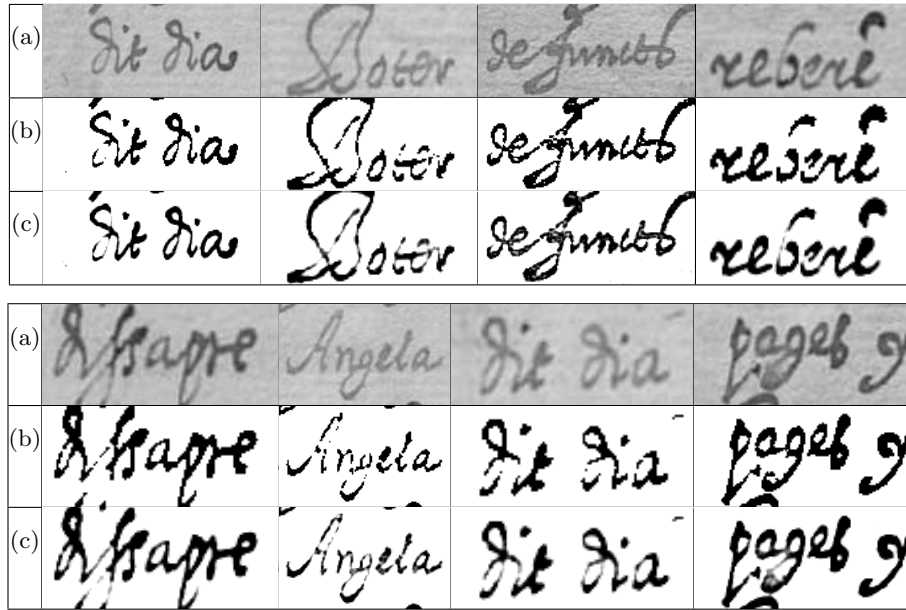 (a) dit dia Boter de functo reberé
(b) dit dia Boter de functo reberé
(c) dit dia Boter de functo reberé
(a) dissapte Angela dit dia pages y
(b) dissapte Angela dit dia pages y
(c) dissapte Angela dit dia pages y